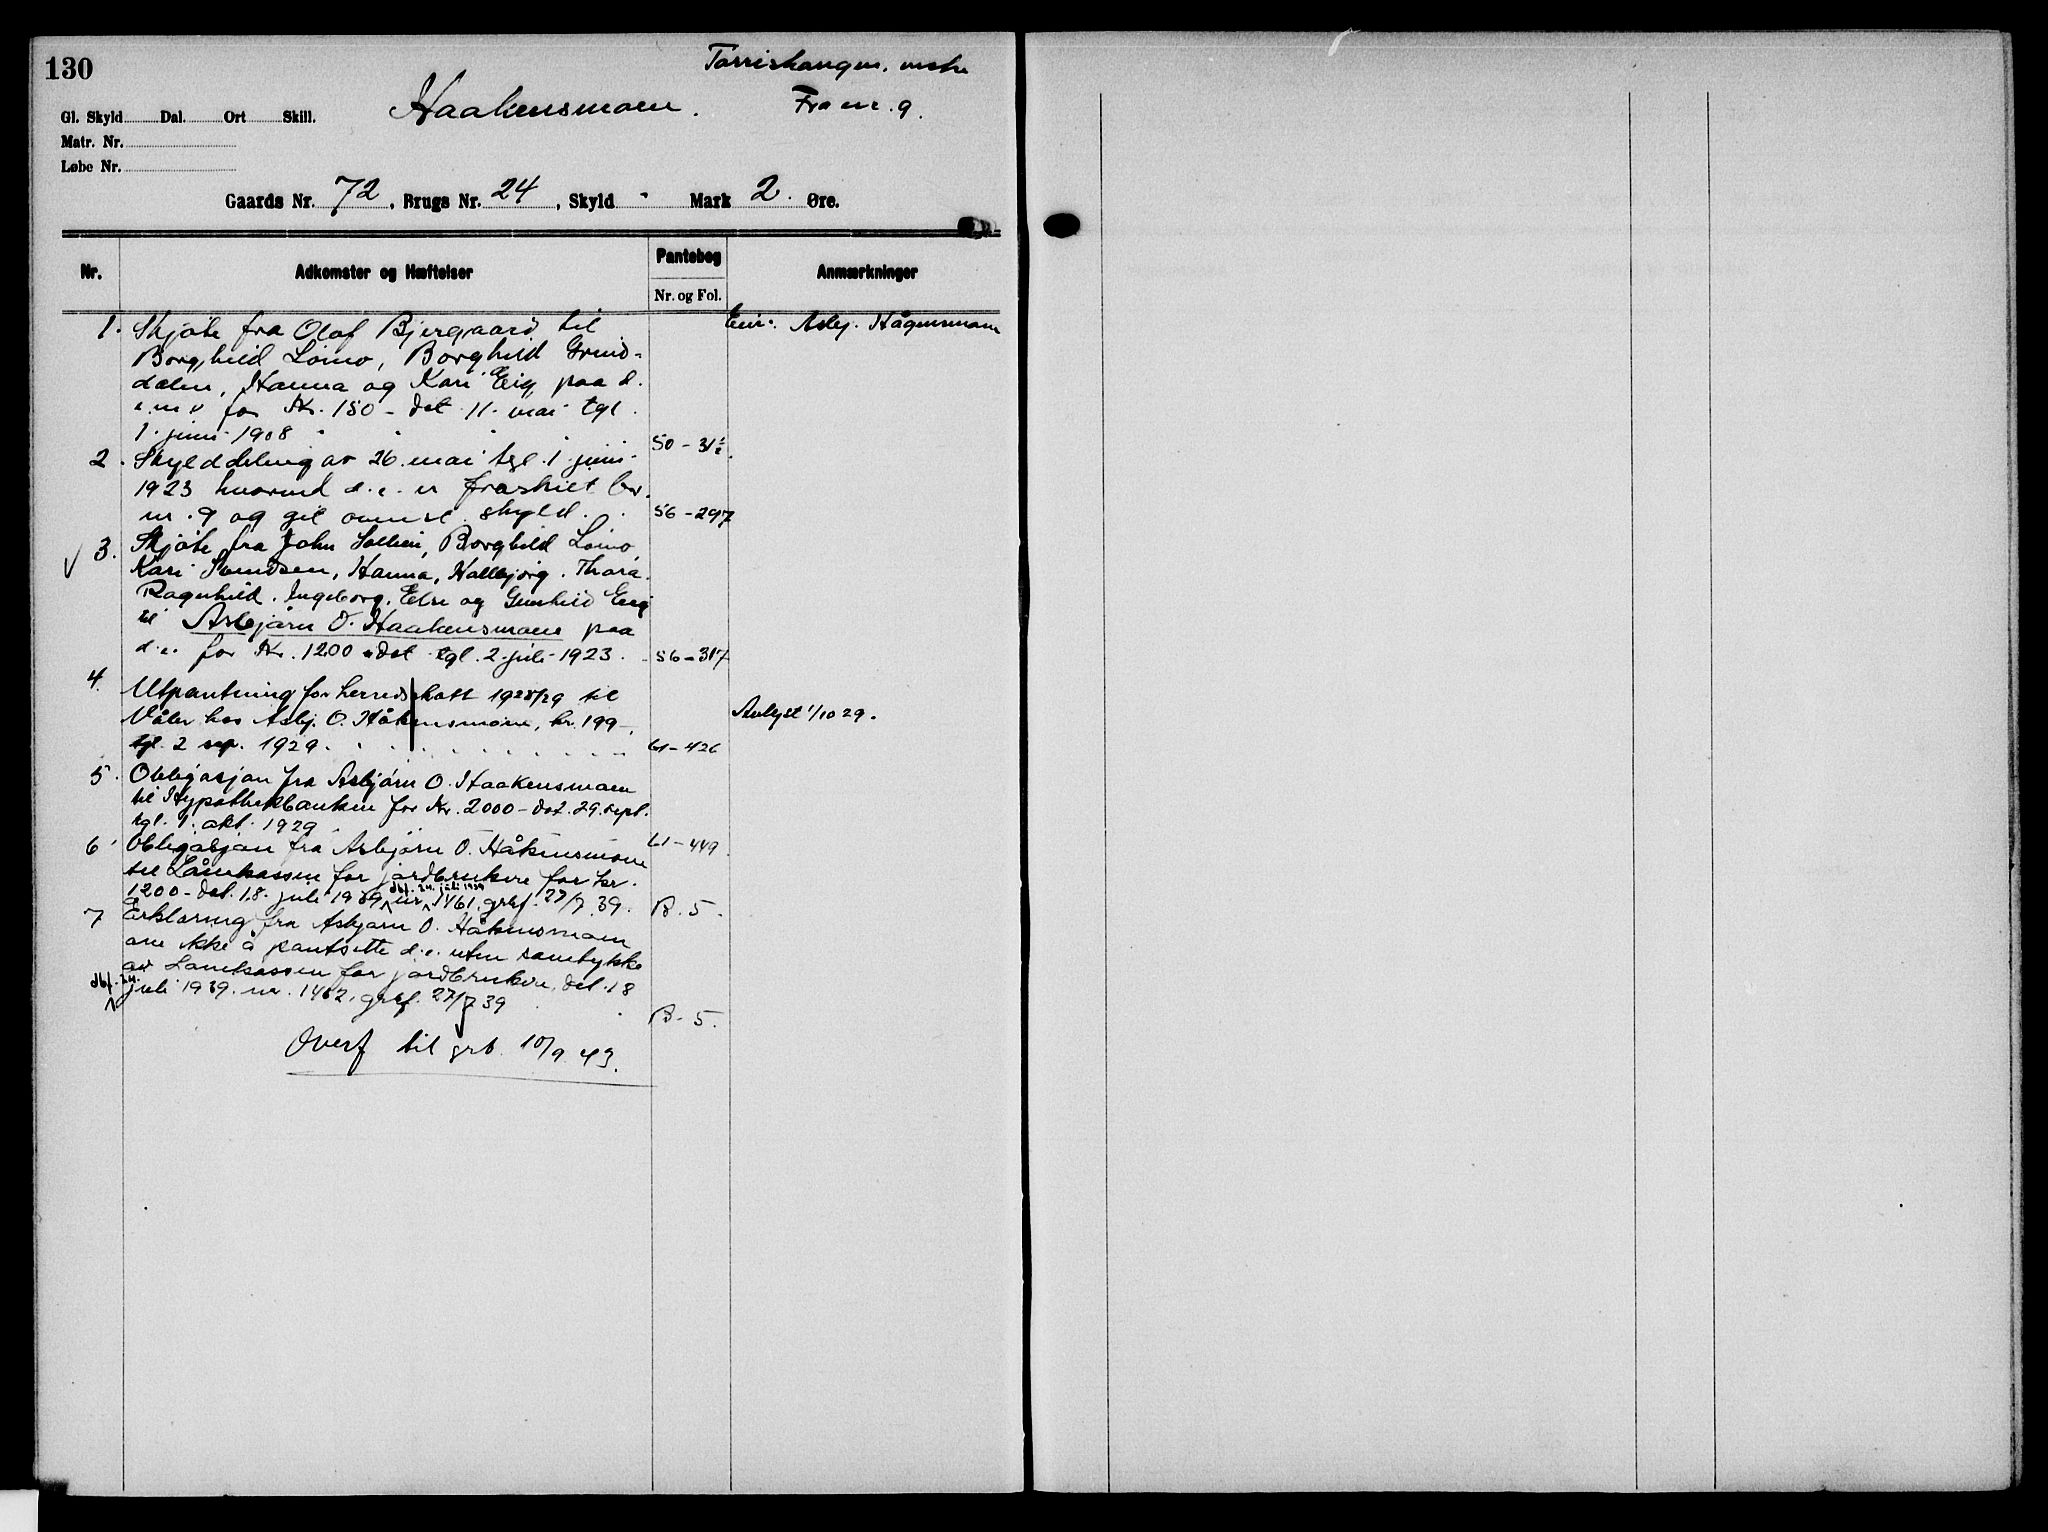 130
Torriskangen, vestre
Gl. Skyld Dal. Ort Skill.
Haakensmoen.
Fra nr. 9.
Matr. Nr.
Løbe Nr.
Gaards Nr. 72, Brugs Nr. 24, Skyld - Mark 2. Øre.
Nr.
Adkomster og Hæftelser
Pantebog
Nr. og Fol.
Anmærkninger
1. Skjøte fra Olaf Bjergaard til
Eier: Asbj. Håkensmoen
Borghild Loino, Borghild Grind-
dalen, Hanna og Kari Eig paa d.
e. m v for Kr. 150 - dat. 11. mai tgl.
1. juni 1908
50 - 31
2. Skylddeling av 26. mai tgl. 1 juni
1923 hvorved d. e. er fraskilt br.
nr. 9 og git ovenst. skyld.
56 - 297
3. Skjøte fra John Solheim, Borghild Loino,
Kari Svendsen, Hanna, Hallbjørg. Thora.
Ragnhild. Ingeborg, Else og Gunhild Eig
til Asbjørn O. Haakensmoen paa
d. e. for Kr. 1200 dat. tgl. 2. juli 1923.
56 - 317
4. Utpantning for herredsskatt 1928/29 til
Våler hos Asbj. O. Håkensmoen, kr. 199 -,
Avlyst 1/10 29.
tgl. 2 sep. 1929.
61 - 426
5. Obligasjon fra Asbjørn O. Haakensmoen
til Hypothekbanken for Kr. 2000 - dat. 29. sept.
tgl. 1. okt. 1929
61 - 449
6. Obligasjon fra Asbjørn O. Håkensmoen
til Lånekassen for jordbrukere for kr.
1200 - dat. 18. juli 1939 dbf. 24. juli 1939 nr. 1461. grbf. 27/7 39.
B. 5.
7 Erklæring fra Asbjørn O. Håkensmoen
om ikke å pantsette d. e. uten samtykke
av Lånekassen for jordbrukere, dat. 18
dbf. 24.
juli 1939. nr. 1462. grbf. 27/7 39
B. 5.
Overf til grb. 10/9 43.